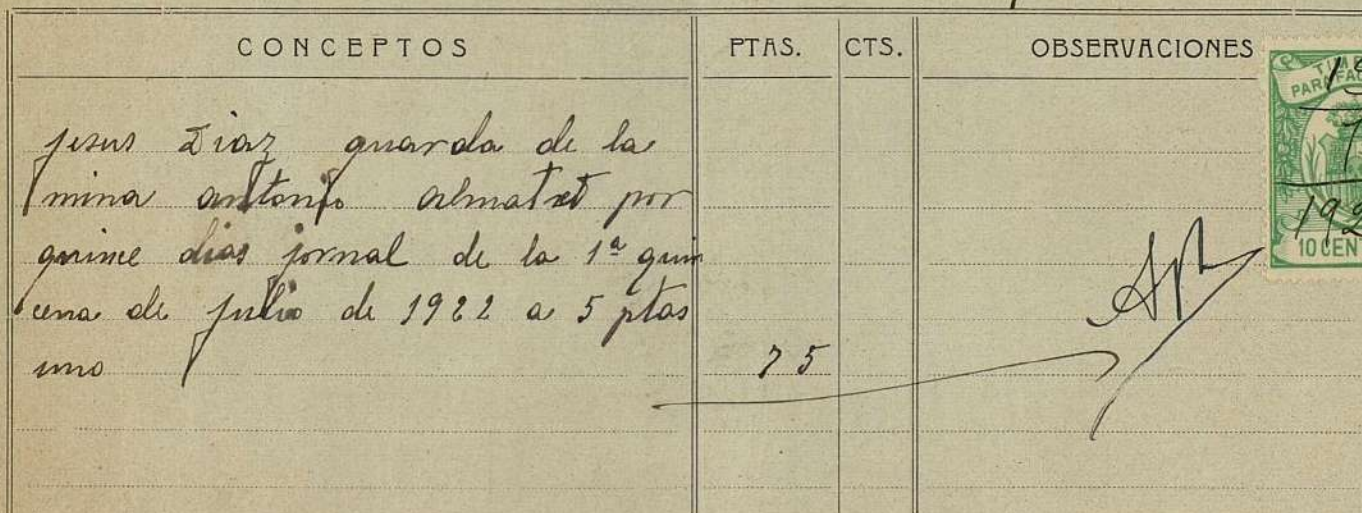 CONCEPTOS PTAS. CTS. OBSERVACIONES
Jesus Diaz guarda de la
mina antonio almatret por
quince dias jornal de la 1ª quin
cena de julio de 1922 a 5 ptas
uno 75
PARA
10 CEN